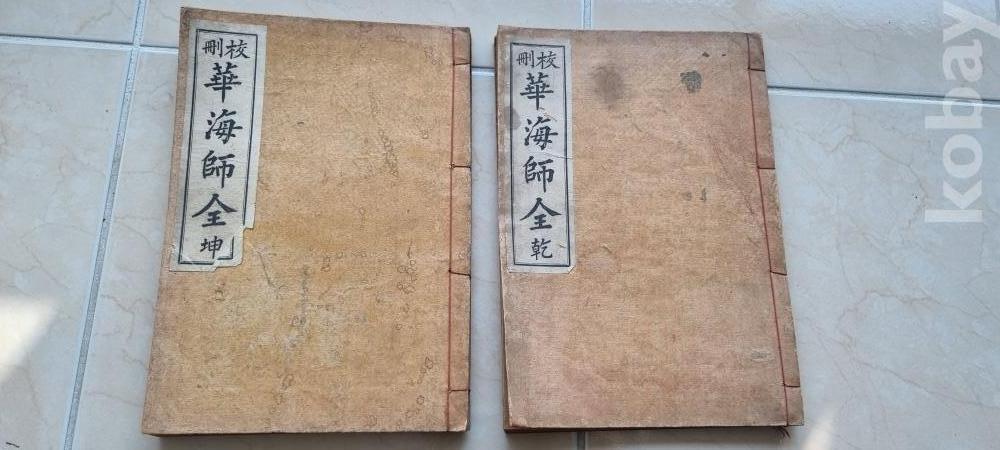 校刪
華海師全
坤
校刪
華海師全
乾
kobay